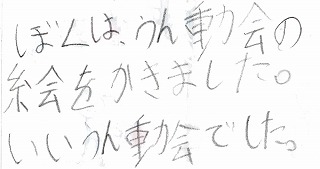 ぼくは、うん動会の
絵をかきました。
いいうん動会でした。